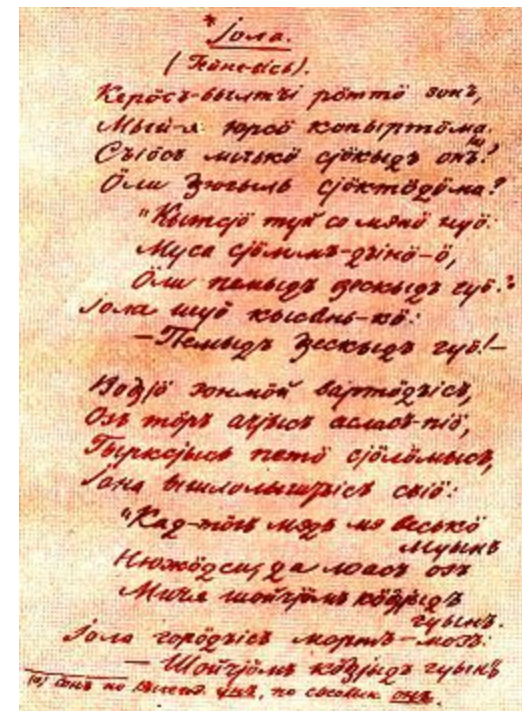 * Јола.
(Пöне-ысь).
Керӧсъ-вылтъі рöттö зонъ,
Мый-я юрсö копыртöма.
Съıöсъ мıчькö сјöкыдъ онъ?
Öли Зюгыль сјöктöдöма?
"Кытсјö туй со мянö нуö:
Муса сјöлымъ-дынö-ö,
Öли пемыдъ зескыдъ гуö?
Јола шуö кысянь-кö:
—Пемыдъ зескыдъ гуö!—
Водзјö зонмöй вартöдъıсъ,
Озъ тöръ ачјысъ аслас-піö,
Гырксјысъ петö сјöлöмысъ,
"Кад-тöгъ мядъ мя веськö
муынъ
Нюжöдся, да лоасъ озъ
Мича шойчјöмъ кöдзыдъ
гуынъ.
Јола горöдъıсъ мортъ-мозъ:
— Шойчјöмъ кöдзыдъ гуынъ